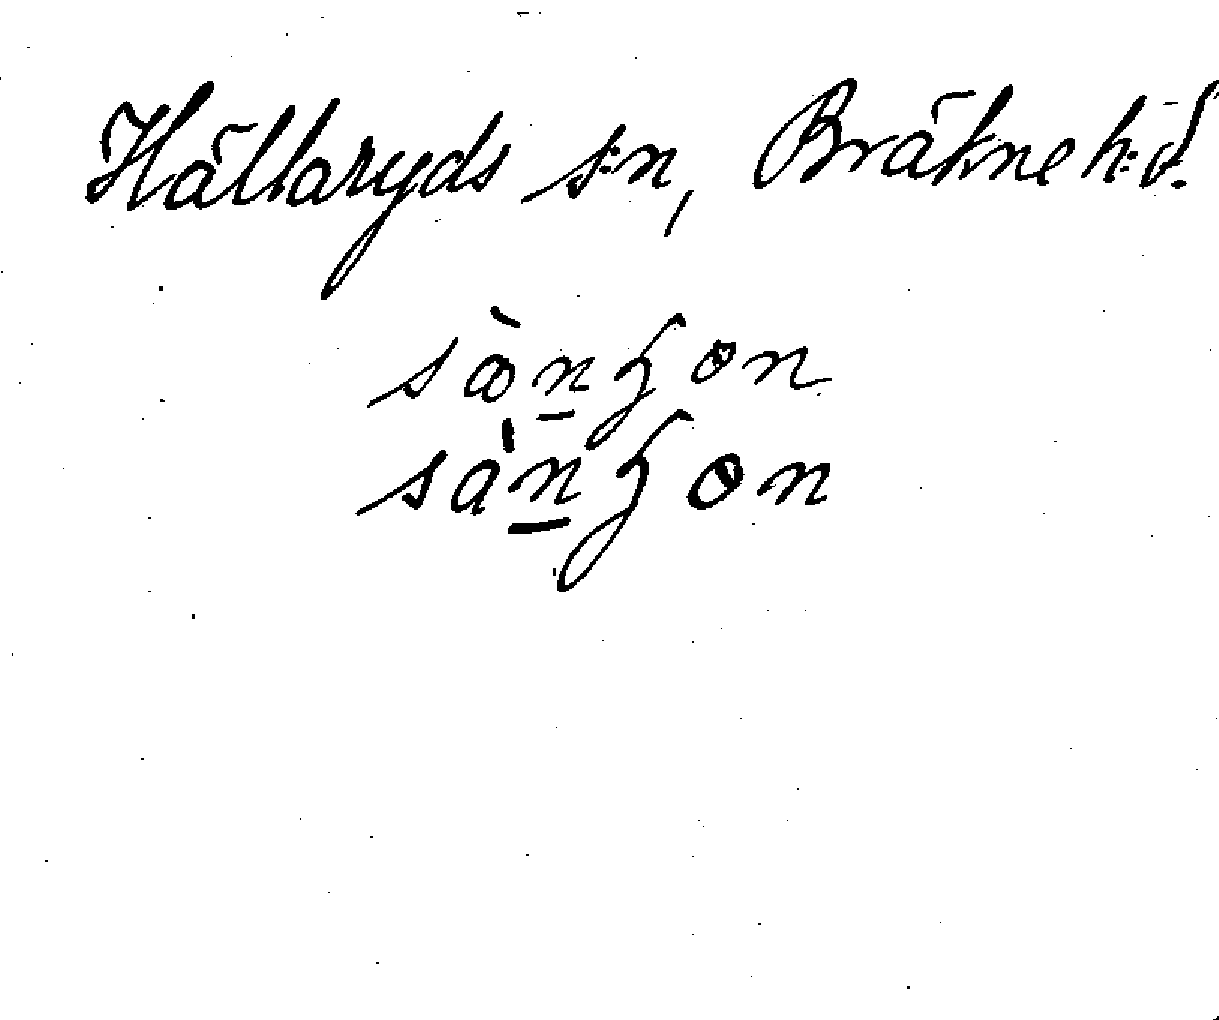 Hällaryds s:n, Bräkne h:d.
sæ̀n̲ʒɵn
sàn̲ʒɵn